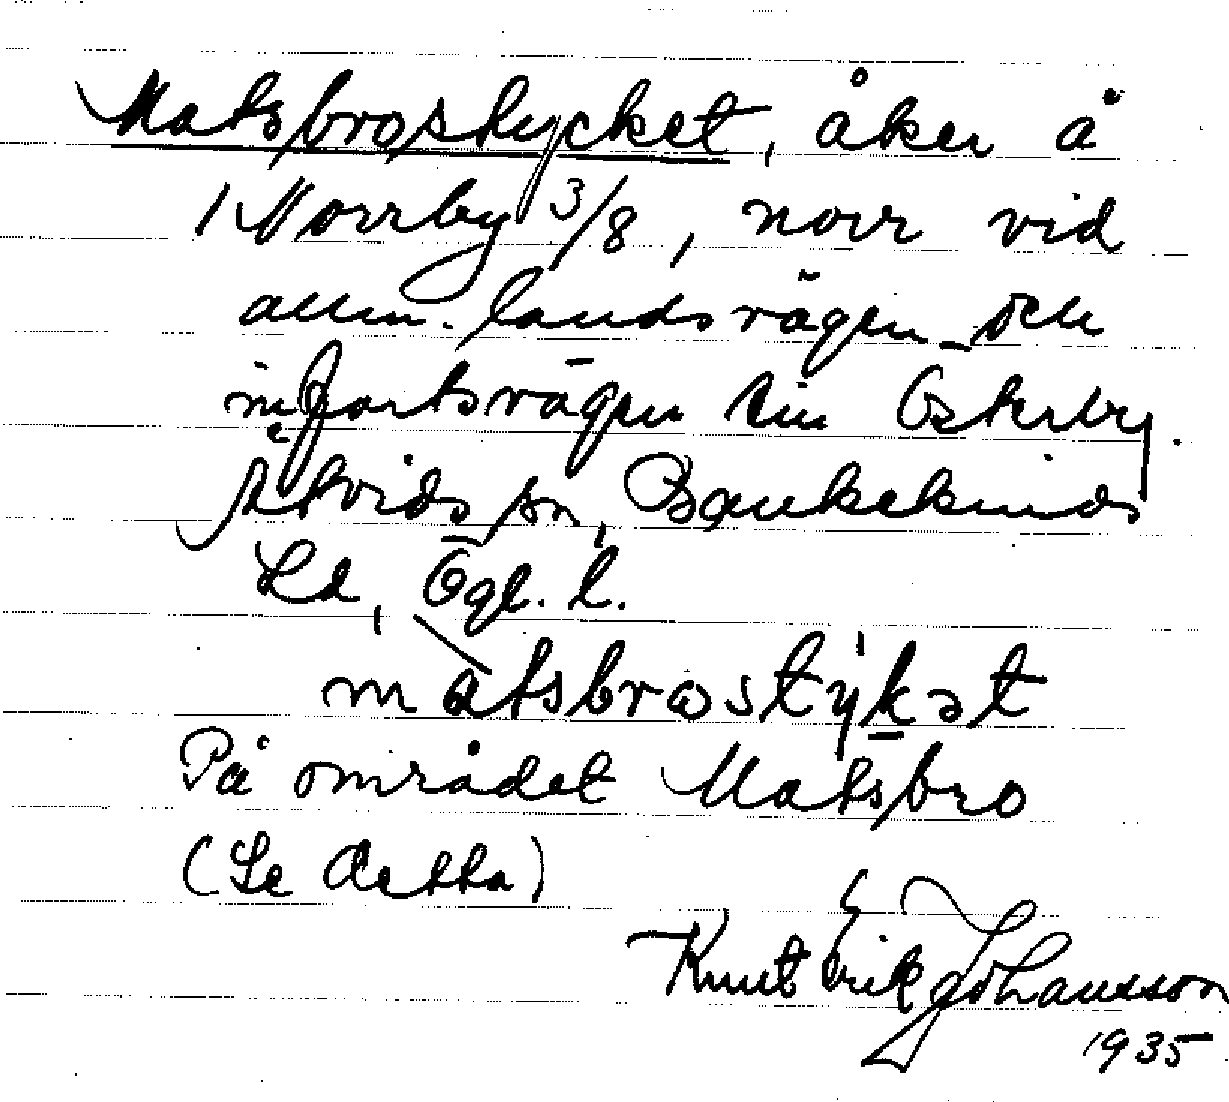 Matsbrostycket, åker å
1 Norrby 3/8, norr vid
allm. landsvägen och
infartsvägen till Österby.
Åtvids sn, Bankekinds
hd, Ögl. l.
matsbrostýkət
På området Matsbro
(Se detta)
Knut Erik Johansson
1935